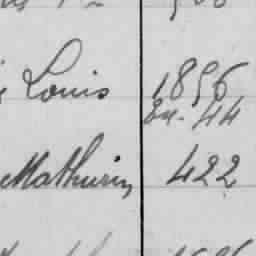 Louis 1896
En-44
Mathurin 422